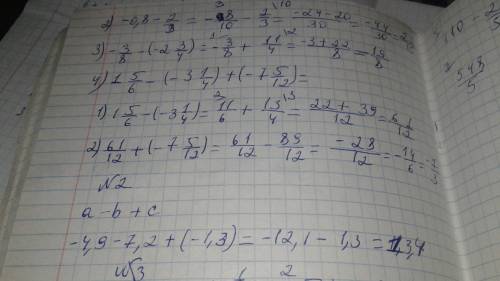 2) -0,8 - 2/3 = -8/10 - 2/3 = (-24-20)/30 = -44/30
3) -3/8 - (-2 3/4) = -3/8 + 11/4 = (-3+22)/8 = 19/8
4) 1 5/6 - (-3 1/4) + (-7 5/12) =
1) 1 5/6 - (-3 1/4) = 11/6 + 13/4 = (22+39)/12 = 61/12
2) 61/12 + (-7 5/12) = 61/12 - 89/12 = -28/12 = -14/6 = -7/3
N2
a - b + c
-4,9 - 7,2 + (-1,3) = -12,1 - 1,3 = 13,4
N3